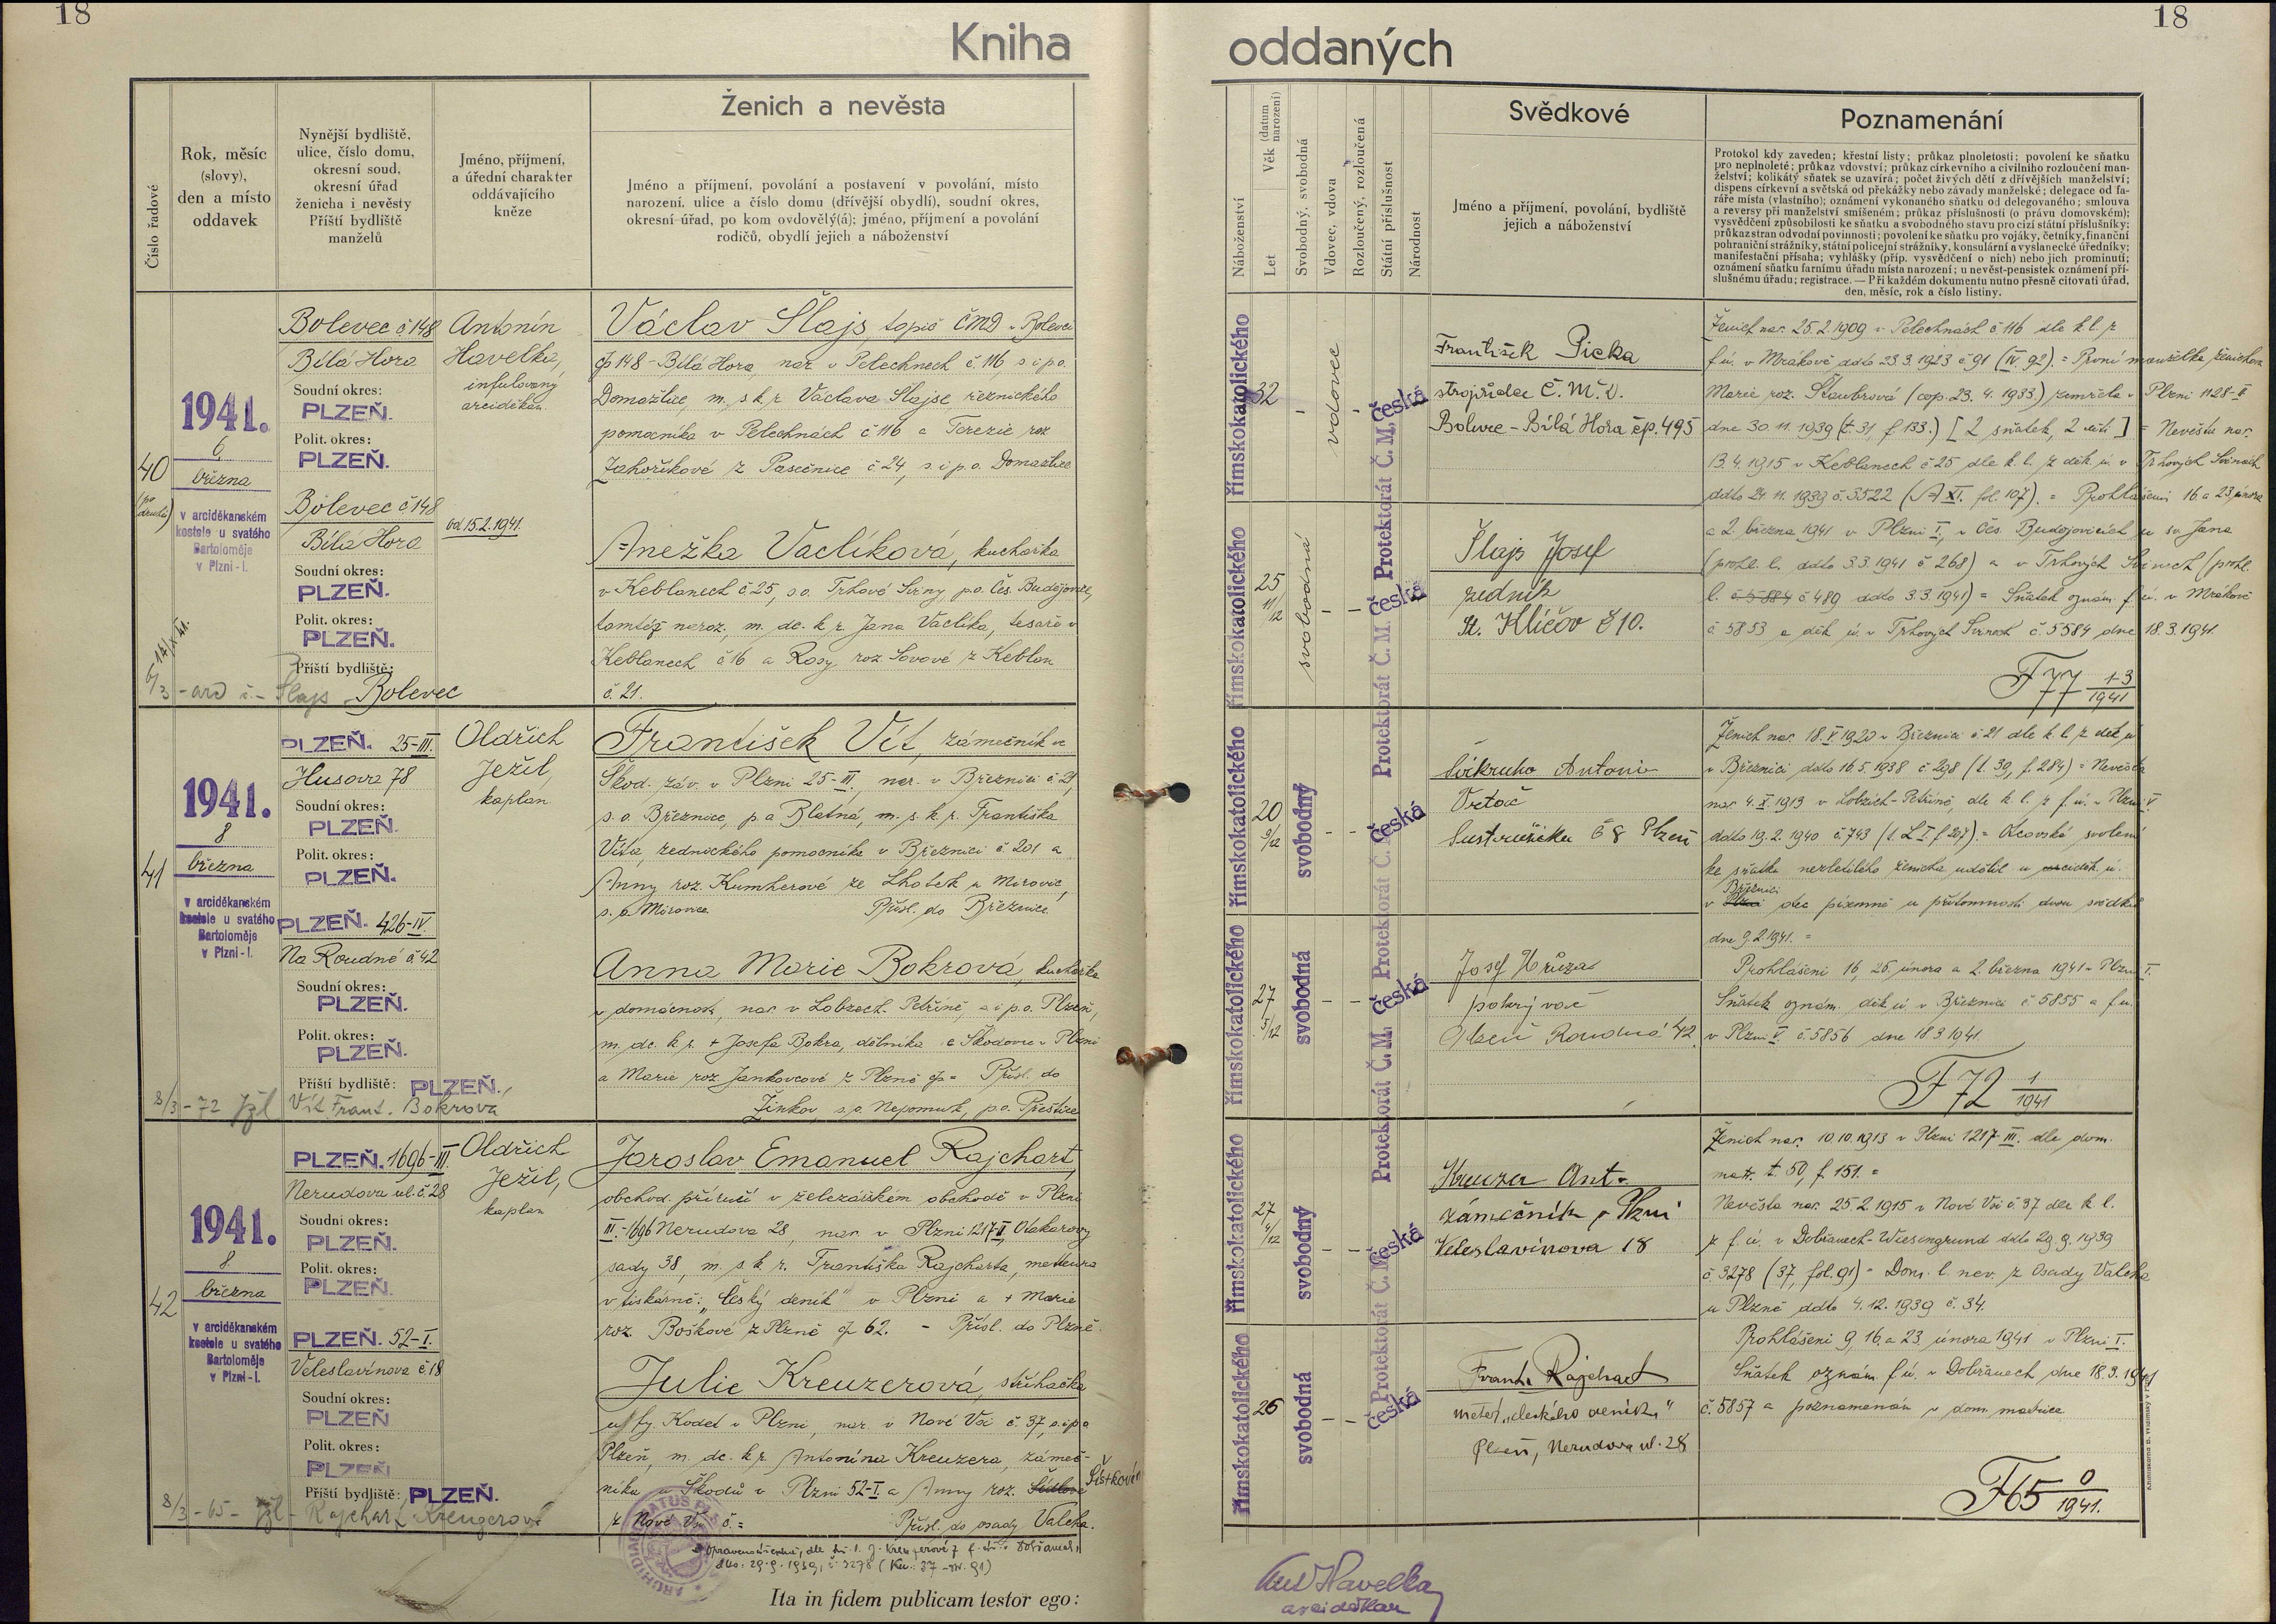 18
18
Kniha
oddaných
Číslo řadové
Rok, měsíc
(slovy),
den a místo
oddavek
Nynější bydliště,
ulice, číslo domu,
okresní soud,
okresní úřad
ženicha i nevěsty
Příští bydliště
manželů
Jméno, příjmení,
a úřední charakter
oddávajícího
kněze
Ženich a nevěsta
Jméno a příjmení, povolání a postavení v povolání, místo
narození, ulice a číslo domu (dřívější obydlí), soudní okres,
okresní úřad, po kom ovdovělý(á); jméno, příjmení a povolání
rodičů, obydlí jejich a náboženství
40
(po druhé)
1941.
6
března
v arciděkanském
kostele u svatého
Bartoloměje
v Plzni-I.
Bolevec č. 148
Bílá Hora
Soudní okres:
PLZEŇ.
Polit. okres:
PLZEŇ.
Bolevec č. 148
Bílá Hora
Soudní okres:
PLZEŇ.
Polit. okres:
PLZEŇ.
Příští bydliště:
Šlajs Bolevec
Antonín
Havelka,
infulovaný
arciděkan.
od 15.2.1941.
Václav Šlajs, topič ČMD v Bolevci
čp 148 - Bílá Hora, nar. v Pelechnech č. 116, s. i p. o.
Domažlice, m. s. k. r. Václava Šlajse, řeznického
pomocníka v Pelechnách č 116 a Terezie roz.
Zahoříkové z Pasečnice č 24, s. i p. o. Domažlice
Anežka Vaclíková, kuchařka
v Keblanech č. 25, s.o. Trhové Sviny, p.o. Čes. Budějovice,
tamtéž naroz. m. dc. k. r. Jana Vaclíka, tesaře v
Keblanech č 16 a Rosy roz. Sovové z Keblan
č. 21.
41
1941.
8
března
v arciděkanském
kostele u svatého
Bartoloměje
v Plzni-I.
PLZEŇ. 25-III.
Husova 78
Soudní okres:
PLZEŇ.
Polit. okres:
PLZEŇ.
PLZEŇ. 426-IV.
Na Roudné č. 42
Soudní okres:
PLZEŇ.
Polit. okres:
PLZEŇ.
Příští bydliště: PLZEŇ.,
8/3 - 72 Vít Frant. Bokrova
Oldřich
Ježil,
kaplan
František Vít, zámečník ve
Škod. záv. v Plzni 25-III., nar. v Březnici č 21,
s. o. Březnice, p. o Blatná, m. s. k. r. Františka
Víta, zednického pomocníka v Březnici č. 201 a
Anny roz. Kumherové ze Lhotek u Mirovic,
s. o Mirovice. Přísl. do Březnice
Anna Marie Bokrová, kuchařka
v domácnosti, nar. v Lobzech-Petříně, s i p. o. Plzeň,
m. dc. k. r. + Josefa Bokra, dělníka ve Škodovce v Plzni
a Marie roz. Jankovcové z Plzně čp = Přísl. do
Žinkov, s. o. Nepomuk, p. o. Přeštice
42
1941.
8
března
v arciděkanském
kostele u svatého
Bartoloměje
v Plzni-I.
PLZEŇ. 1696-III.
Nerudova ul. č. 28
Soudní okres:
PLZEŇ.
Polit. okres:
PLZEŇ.
PLZEŇ. 52-I.
Veleslavínova č 18
Soudní okres:
PLZEŇ
Polit. okres:
PLZEŇ
Příští bydliště: PLZEŇ.
8/3 - 65 - Rajchart Kreuzerova
Oldřich
Ježil,
kaplan
Jaroslav Emanuel Rajchart,
obchod. příručí v železářském obchodě v Plzni
III.-1696 Nerudova 28, nar. v Plzni 1217-II, Otakarovy
sady 38, m. s. k. r. Františka Rajcharta, metteura
v tiskárně: „Český deník" v Plzni a + Marie
roz. Boškové z Plzně čp 62. - Přísl. do Plzně.
Julie Kreuzerová, střihačka
u fy. Kodet v Plzni, nar. v Nové Vsi č. 37, s. i p. o
Plzeň, m. dc. k. r. Antonína Kreuzera, zámeč-
níka u Škodů v Plzni 52-I. a Anny roz. Šístkové
z Nové Vsi č. = Přísl. do osady Valcha.
Ita in fidem publicam testor ego:
Náboženství
Let
Věk (datum narození)
Svobodný, svobodná
Vdovec, vdova
Rozloučený, rozloučená
Státní příslušnost
Národnost
Svědkové
Jméno a příjmení, povolání, bydliště
jejich a náboženství
Poznamenání
Protokol kdy zaveden; křestní listy; průkaz plnoletosti; povolení ke sňatku
pro neplnoleté; průkaz vdovství; průkaz církevního a civilního rozloučení man-
želství; kolikátý sňatek se uzavírá; počet živých dětí z dřívějších manželství;
dispens církevní a světská od překážky nebo závady manželské; delegace od fa-
ráře místa (vlastního); oznámení vykonaného sňatku od delegovaného; smlouva
a reversy při manželství smíšeném; průkaz příslušnosti (o právu domovském);
vysvědčení způsobilosti ke sňatku a svobodného stavu pro cizí státní příslušníky;
průkaz stran odvodní povinnosti; povolení ke sňatku pro vojáky, četníky, finanční
pohraniční strážníky, státní policejní strážníky, konsulární a vyslanecké úředníky;
manifestační přísaha; vyhlášky (příp. vysvědčení o nich) nebo jich prominutí;
oznámení sňatku farnímu úřadu místa narození; u nevěst-pensistek oznámení pří-
slušnému úřadu; registrace. — Při každém dokumentu nutno přesně citovati úřad,
den, měsíc, rok a číslo listiny.
římskokatolického
32
vdovec
Protektorát Č. M.
česká
František Picka
strojvůdce Č. M. D.
Bolevec - Bílá Hora čp. 495
římskokatolického
25
11/12
svobodná
Protektorát Č. M.
česká
Šlajs Josef
zedník
St. Klíčov č 10.
Ženich nar. 25.2.1909 v Pelechnách č 116 dle k. l. z
f. ú. v Mrákově ddto 23.3.1923 č 91 (IV. 92). = První manželka ženichova
Marie roz. Štaubrová (cop. 23. 4. 1933) zemřela v Plzni 1128-II
dne 30. 11. 1939 (t. 31, f. 133.) [2 sňatek, 2 děti] = Nevěsta nar.
13. 4. 1915 v Keblanech č 25 dle k. l. z děk. ú. v Trhových Svinech
ddto 24. 11. 1939 č. 3522 (A XI. fol. 107). = Prohlášeni 16 a 23 února
a 2. března 1941 v Plzni I., v Čes. Budějovicích u sv. Jana
(prohl. l. ddto 3.3.1941 č 268) a v Trhových Svinech (prohl.
l. č 489 ddto 3.3.1941) = Sňatek oznám. f. ú. v Mrákově
č 5853 a děk. ú. v Trhových Svinech č. 5584 dne 18.3.1941.
F 77 13/1941
římskokatolického
20
9/12
svobodný
Protektorát Č. M.
česká
Antonín
Vrtač
č 8 Plzeň
římskokatolického
27
5/12
svobodná
Protektorát Č. M.
česká
Josef Hrůza
pokrývač
Plzeň Roudná 42.
Ženich nar. 18. V 1920 v Březnici č 21 dle k. l. z děk. ú
v Březnici ddto 16.5.1938 č. 298 (t. 39, f. 284) = Nevěsta
nar. 4. X. 1913 v Lobzích-Petříně, dle k. l. z f. ú. v Plzni V.
ddto 19. 2. 1940 č. 743 (t. L I. f 207). = Otcovské svolení
ke sňatku nezletilého ženicha udělil u děk. ú.
v Březnici otec písemně u přítomnosti dvou svědků
dne 9.2.1941. =
Prohlášeni 16, 23, února a 2. března 1941 v Plzni I.
Sňatek oznám. děk. ú v Březnici č 5855 a f. ú.
v Plzni V. č. 5856 dne 18.3.1941.
F 72 1/1941
římskokatolického
27
4/12
svobodný
Protektorát Č. M.
česká
Kreuzer Ant.
zámečník v Plzni
Veleslavínova 18
římskokatolického
26
svobodná
Protektorát Č. M.
česká
Frant. Rajchart
metér „českého deníku"
Plzeň, Nerudova ul. 28
Ženich nar. 10.10.1913 v Plzni 1217-III. dle dom.
matr. t. 50, f. 151. =
Nevěsta nar. 25. 2. 1915 v Nové Vsi č. 37 dle k. l.
z f. ú. v Dobřanech-Wiesengrund ddto 29. 9. 1939
č 3278 (37, fol. 91) = Dom. l. nev. z osady Valcha
u Plzně ddto 4. 12. 1939 č. 34.
Prohlášeni 9, 16, a 23 února 1941 v Plzni I.
Sňatek oznám. f. ú. v Dobřanech dne 18. 3. 1941
č. 5857 a poznamenán v dom. matrice
F 65 0/1941.
Ant Havelka
arciděkan